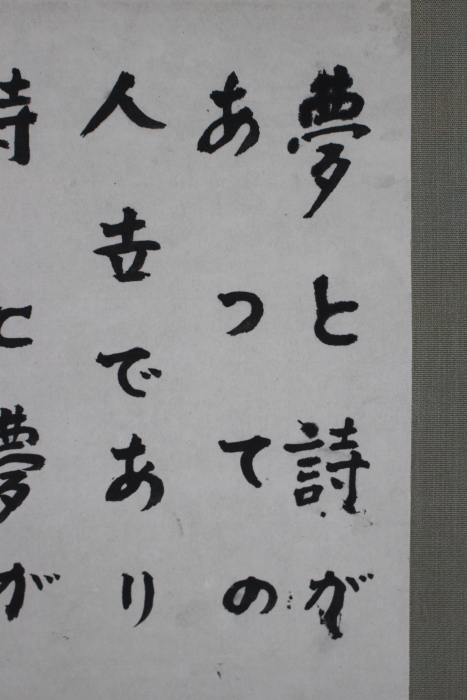 夢と詩が
あつての
人世であり
詩と夢が